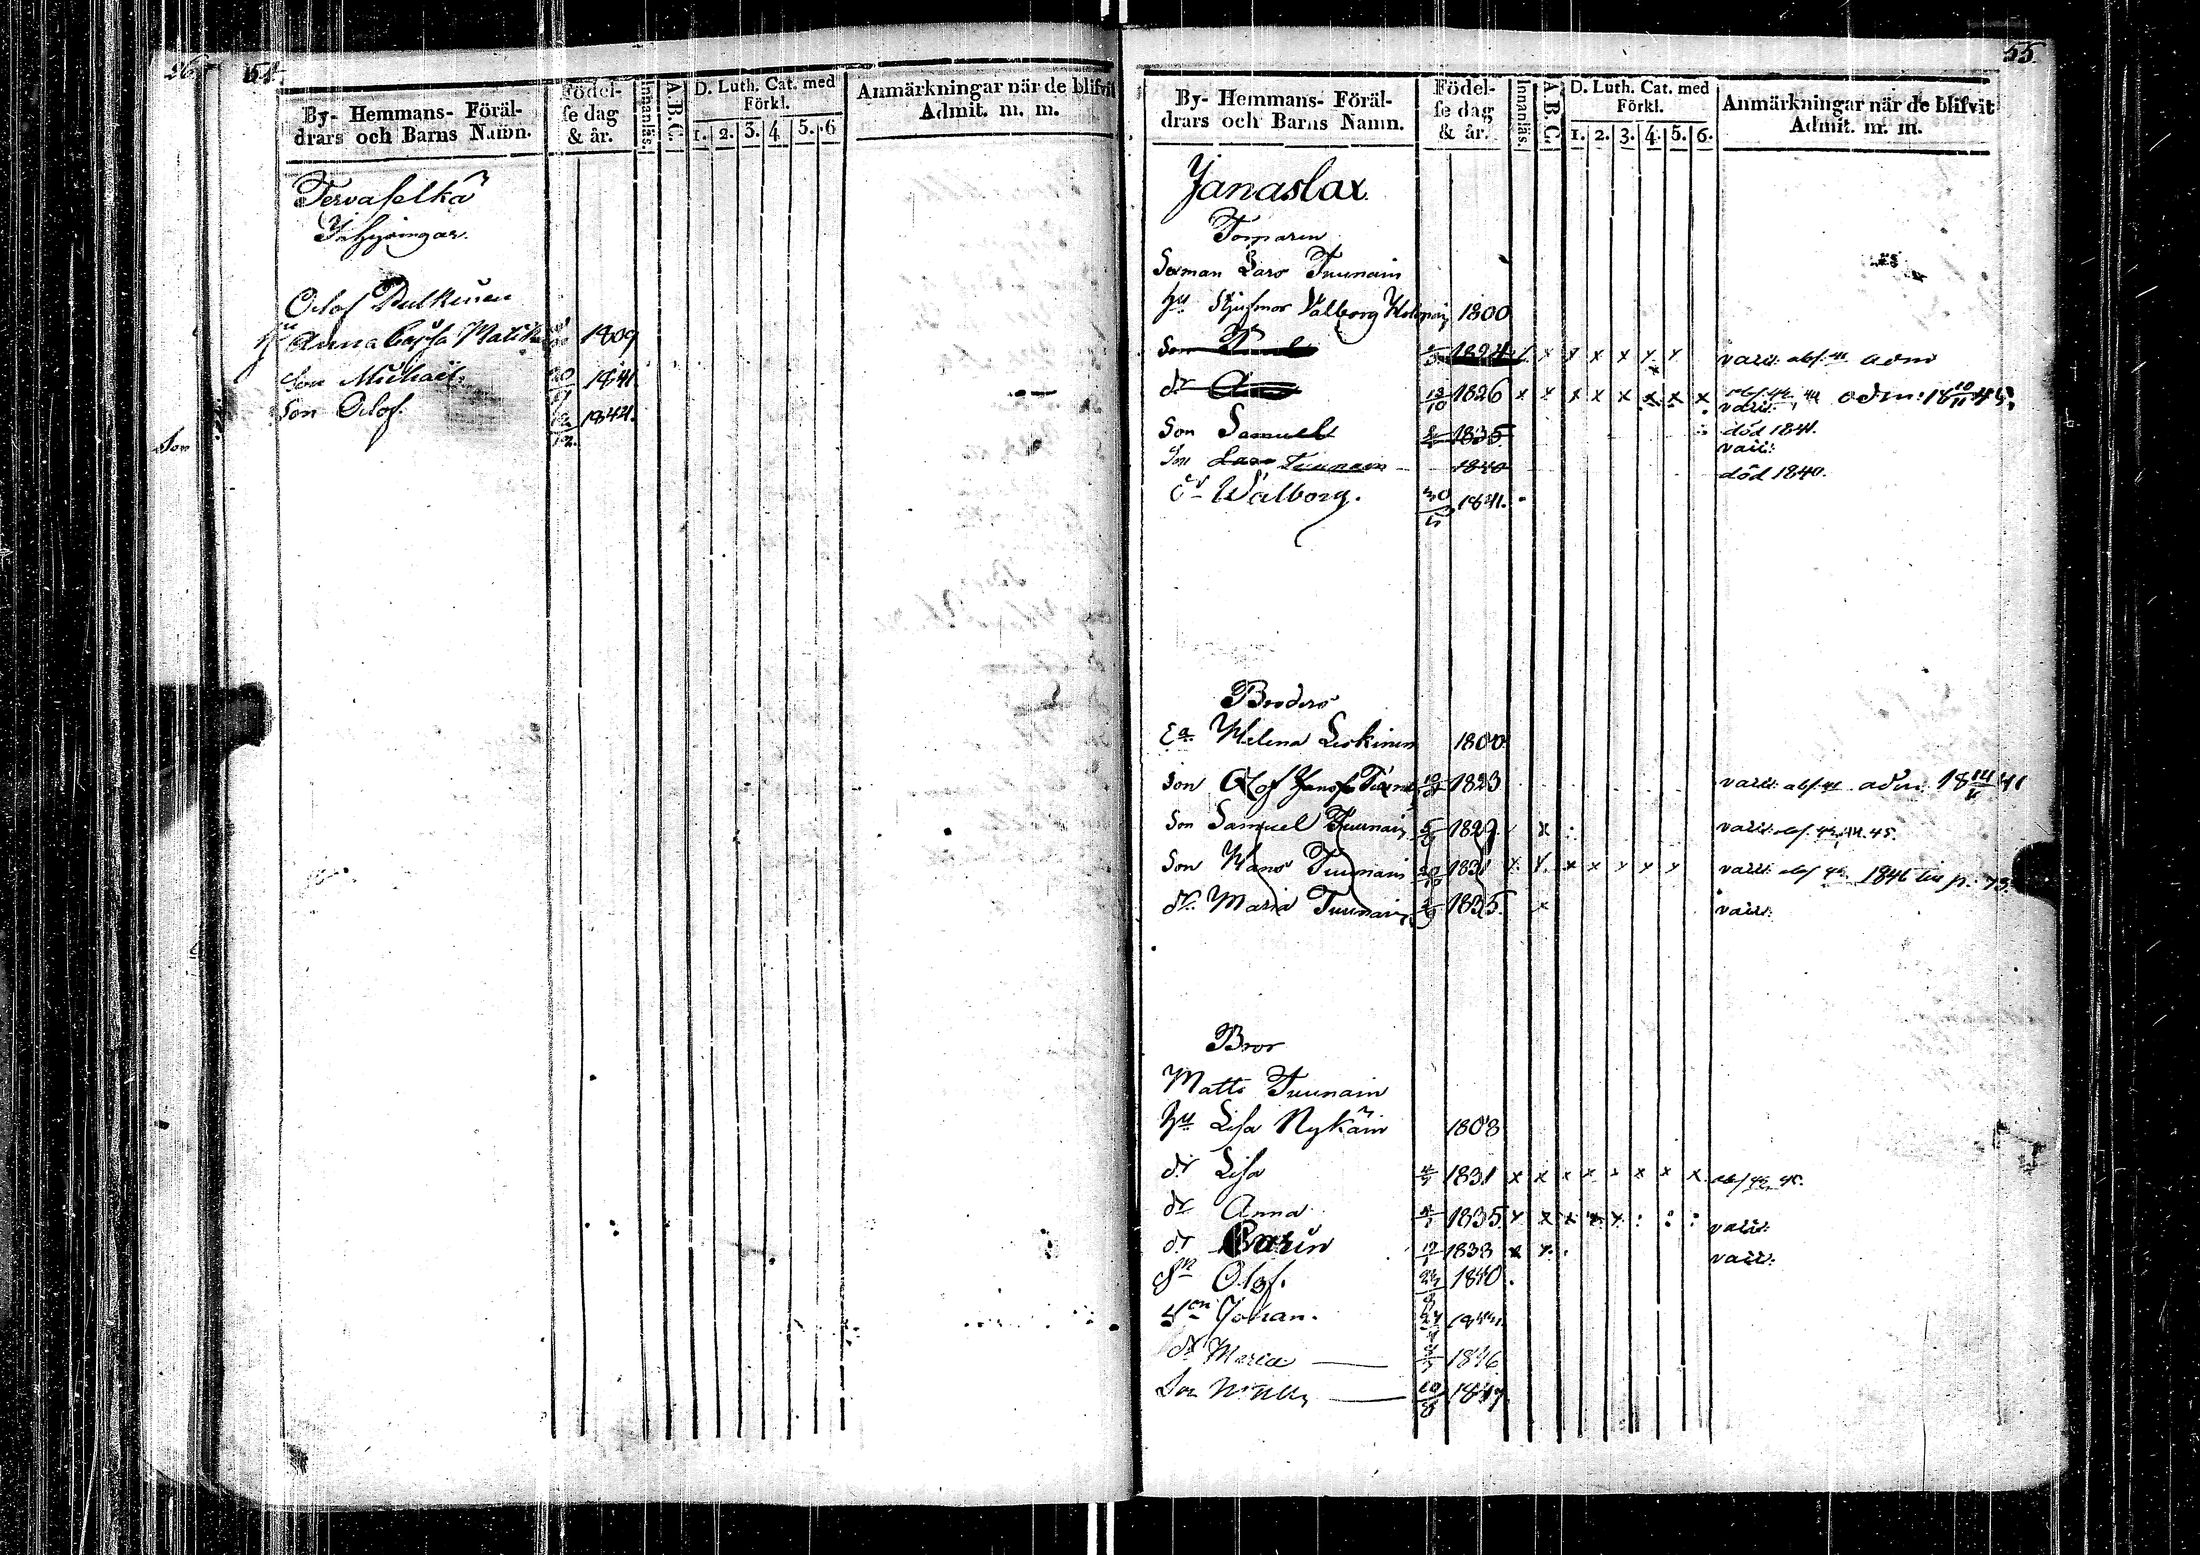 54.
By- Hemmans- Föräl-
drars och Barns Namn.
Födel-
se dag
& år.
Innanläs.
A.B.C.
D. Luth. Cat. med
Förkl.
1. 2. 3. 4 5. 6
Anmärkningar när de blifvit
Admit. m. m.
Tervaselkä
Olof Pulkinen
hu Anna Cajsa 1809
Son Michael 20 1841.
Son Olof. 1844.
Son
55.
By- Hemmans- Föräl-
drars och Barns Namn.
Födel-
se dag
& år.
Innanläs.
A.B.C.
D. Luth. Cat. med
Förkl.
1. 2. 3. 4. 5. 6.
Anmärkningar när de blifvit
Admit. m. m.
Janaslax
Tomaren
Sexman Lars Tuunain
hu Stjufmor Valborg 1800
Son 1824 x x x x x x vacc: abs. 41 adm
dr 12/10 1826 x x x x x x x x abs. 42. 44 adm: 18 10/11 45
vacc:
Son Samuel 1835 död 1841.
vacc:
Son Lars Tuunain 1840 död 1840.
dr Walborg. 1841.
Broders
Ea Helena Leskinen 1800
Son Olof 1823 vacc: abs. 41 adm: 18 14/11 41
Son Samuel Tuunain 1829 x vacc: abs. 43. 44. 45.
Son Hans Tuunain 1831 x x x x x x x vacc: abs 42. 1846 till p. 73.
dr. Maria Tuunain 1835. x vacc:
Bror
Matts Tuunain
hu Lisa Nykäin 1808
dr Lisa 1831 x x x x x x x x abs 43. 45.
dr Anna 1835 x x x x x : : : vacc:
dr Carin 1838 x x. vacc:
Sn Olof. 1840.
Son Johan. 1844.
dr Maria 1846
Son 10/8 1849